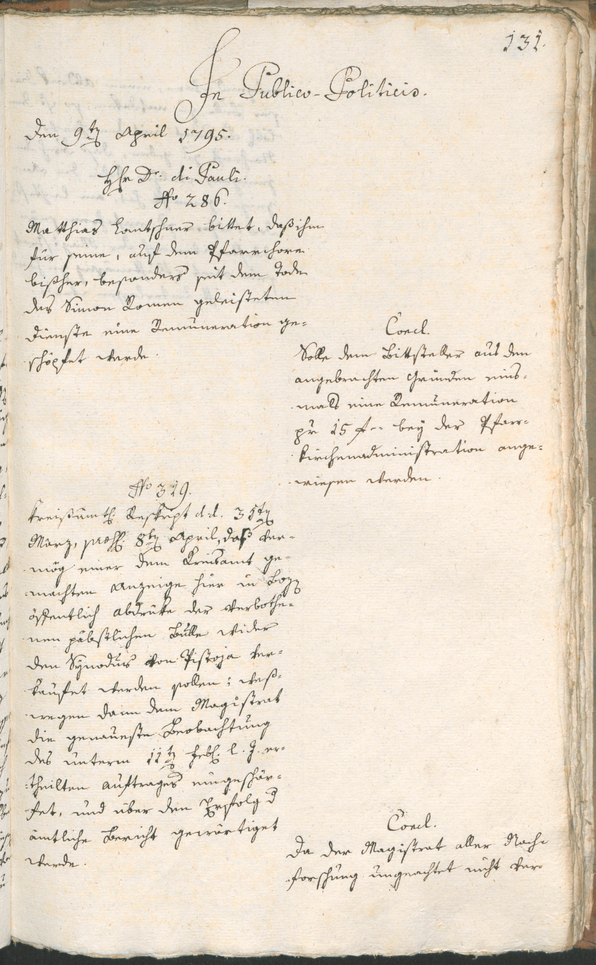 131.
In Publico-Politicis.
den 9ten April 1795.
Hhr Dr. di Pauli.
No 286.
Matthias Lantschner bittet, daß ihm
für seine, auf dem Pfarrchore
bisher, besonders seit dem Tode
des Simon Romen geleisteten
Dienste eine Remuneration ge-
schöpfet werde.
Concl.
Solle dem Bittsteller aus den
angebrachten Gründen eins-
mals eine Remuneration
pr 15 f- bey der Pfarr-
kirchenadministration ange-
wiesen werden.
No 329.
Kreisämtl. Reskript d.d. 31ten
März, praes. 8ten April, daß ver-
mög einer dem Kreisamt ge-
machten Anzeige hier in Boz.
öffentlich Abdrüke der verbothe-
nen päbstlichen Bulle wider
den Synodus von Pistoja ver-
kaufet werden sollen; weß-
wegen dann dem Magistrat
die genaueste Beobachtung
des unterm 11ten Febr. l. J. er-
theilten Auftrages eingeschär-
fet, und über den Erfolg d
ämtliche Bericht gewärtiget
werde.
Concl.
Da der Magistrat aller Nach-
forschung ungeachtet nicht ver-